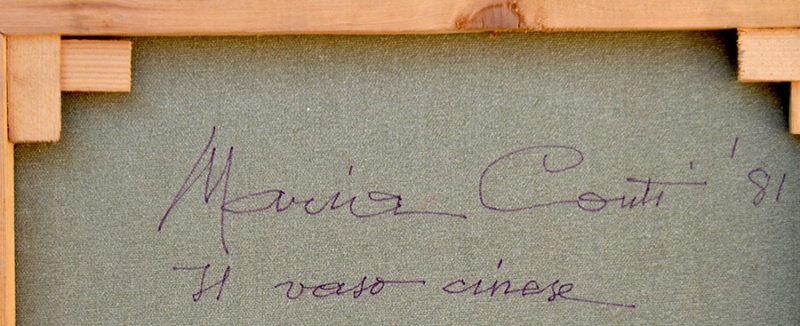 Marina Conti '81
Il vaso cinese